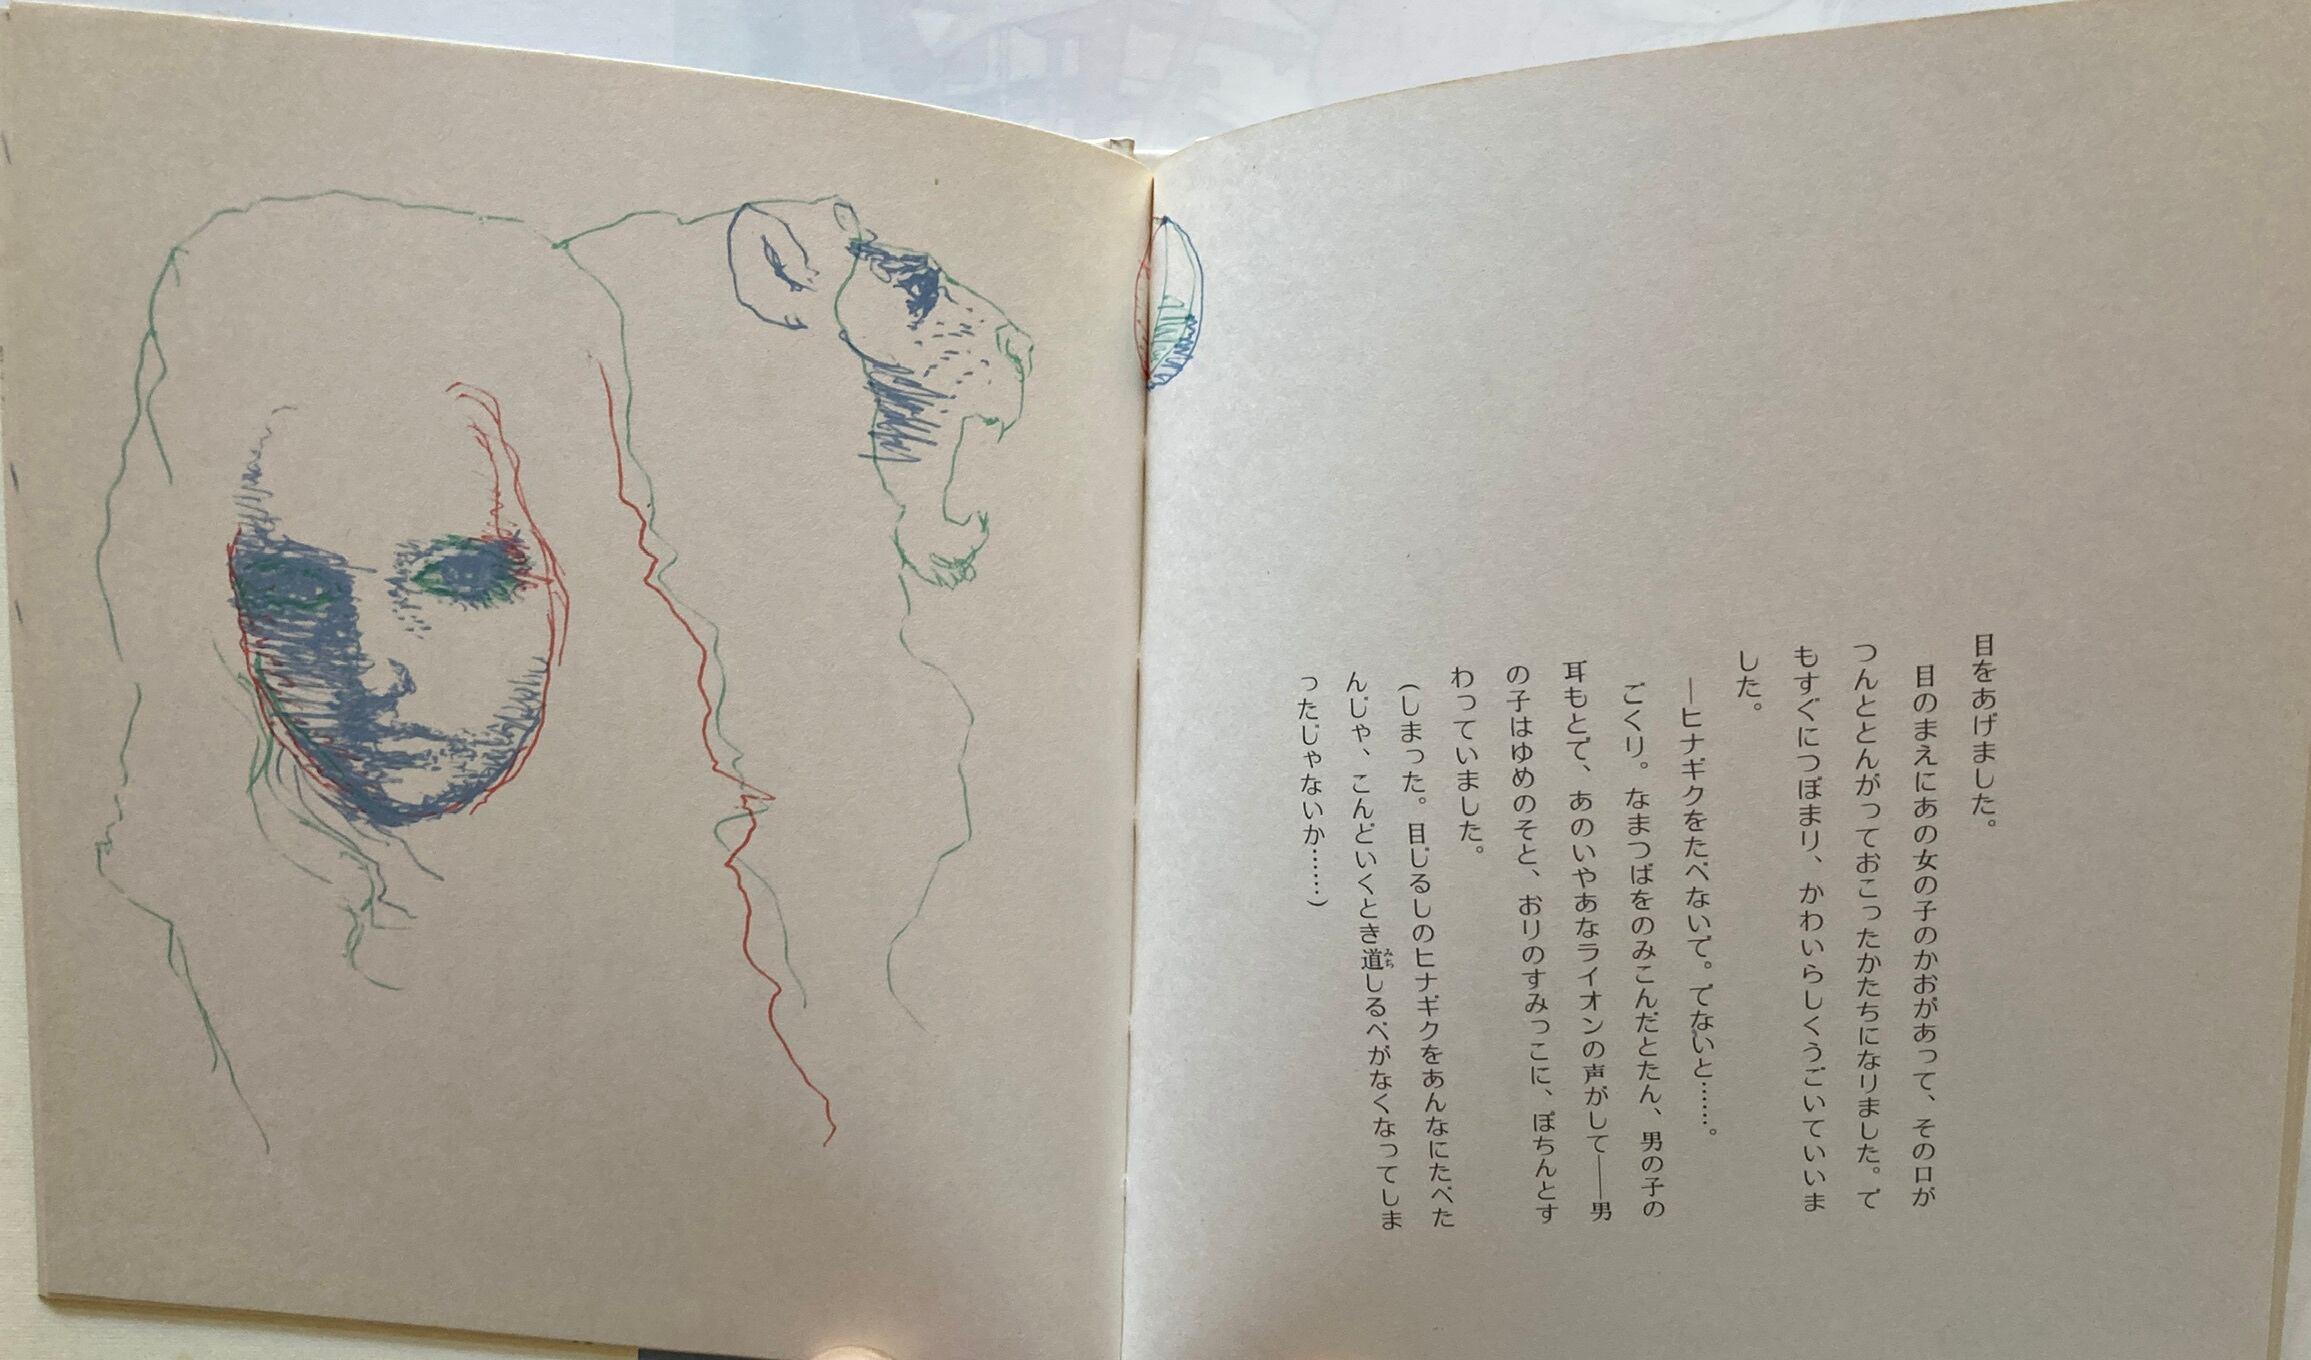 目をあげました。
目のまえにあの女の子のかおがあって、その口が
つんととんがっておこったかたちになりました。で
もすぐにつぼまり、かわいらしくうごいていいま
した。
―ヒナギクをたべないで。でないと……。
ごくり。なまつばをのみこんだとたん、男の子の
耳もとで、あのいやあなライオンの声がして――男
の子はゆめのそと、おりのすみっこに、ぽちんとす
わっていました。
(しまった。目じるしのヒナギクをあんなにたべた
んじゃ、こんどいくとき道みちしるべがなくなってしま
ったじゃないか……)